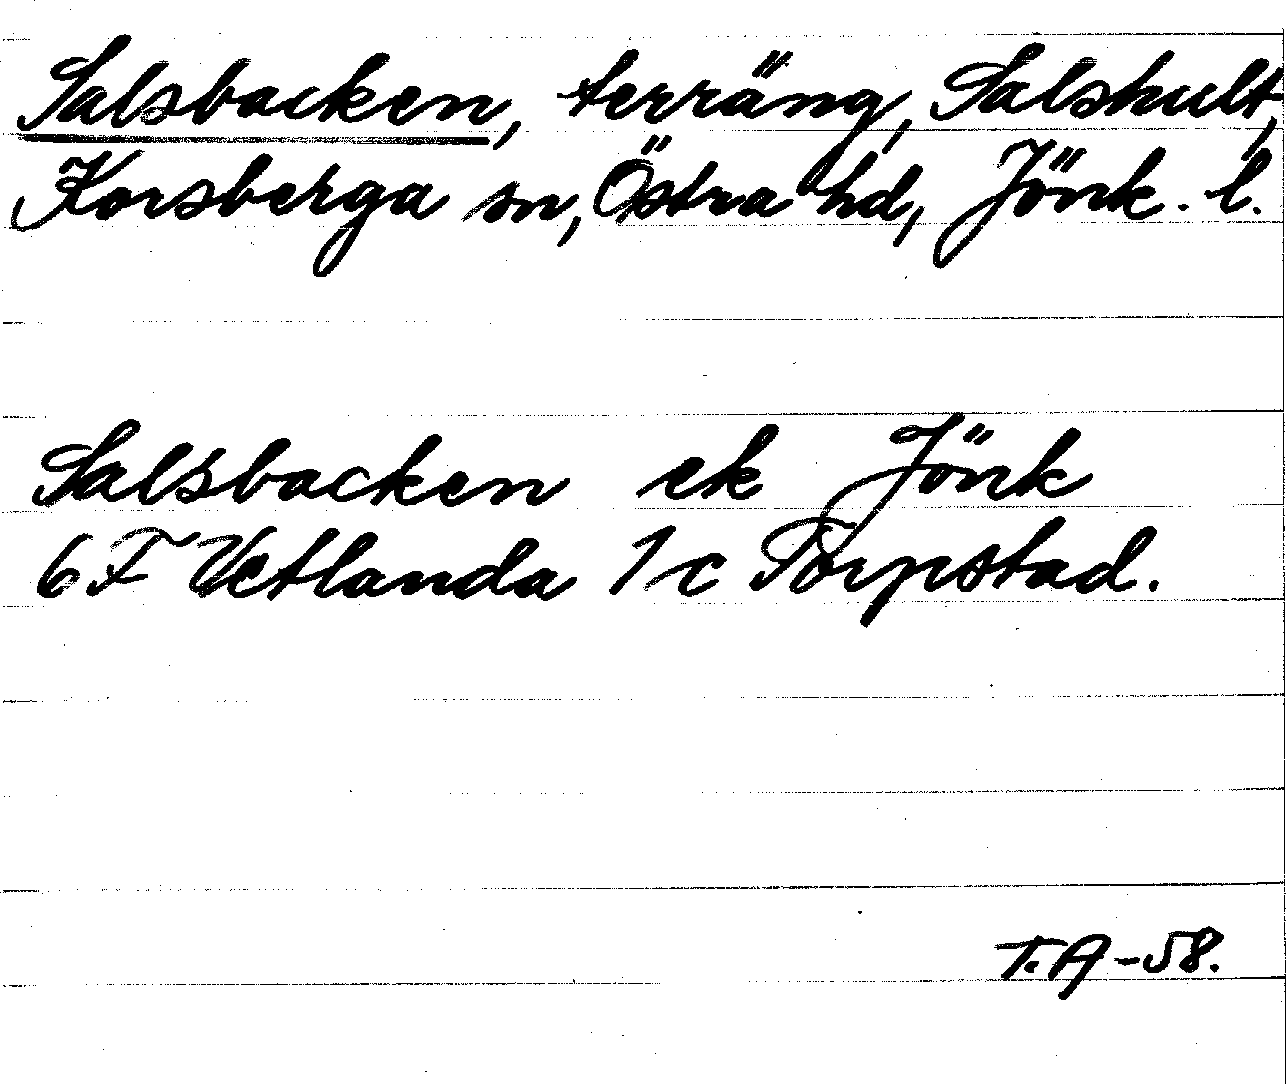 Salsbacken, terräng, Salshult,
Korsberga sn, Östra hd, Jönk. l.
Salsbacken ek Jönk
6F Vetlanda 1c Torpstad.
T.A -58.